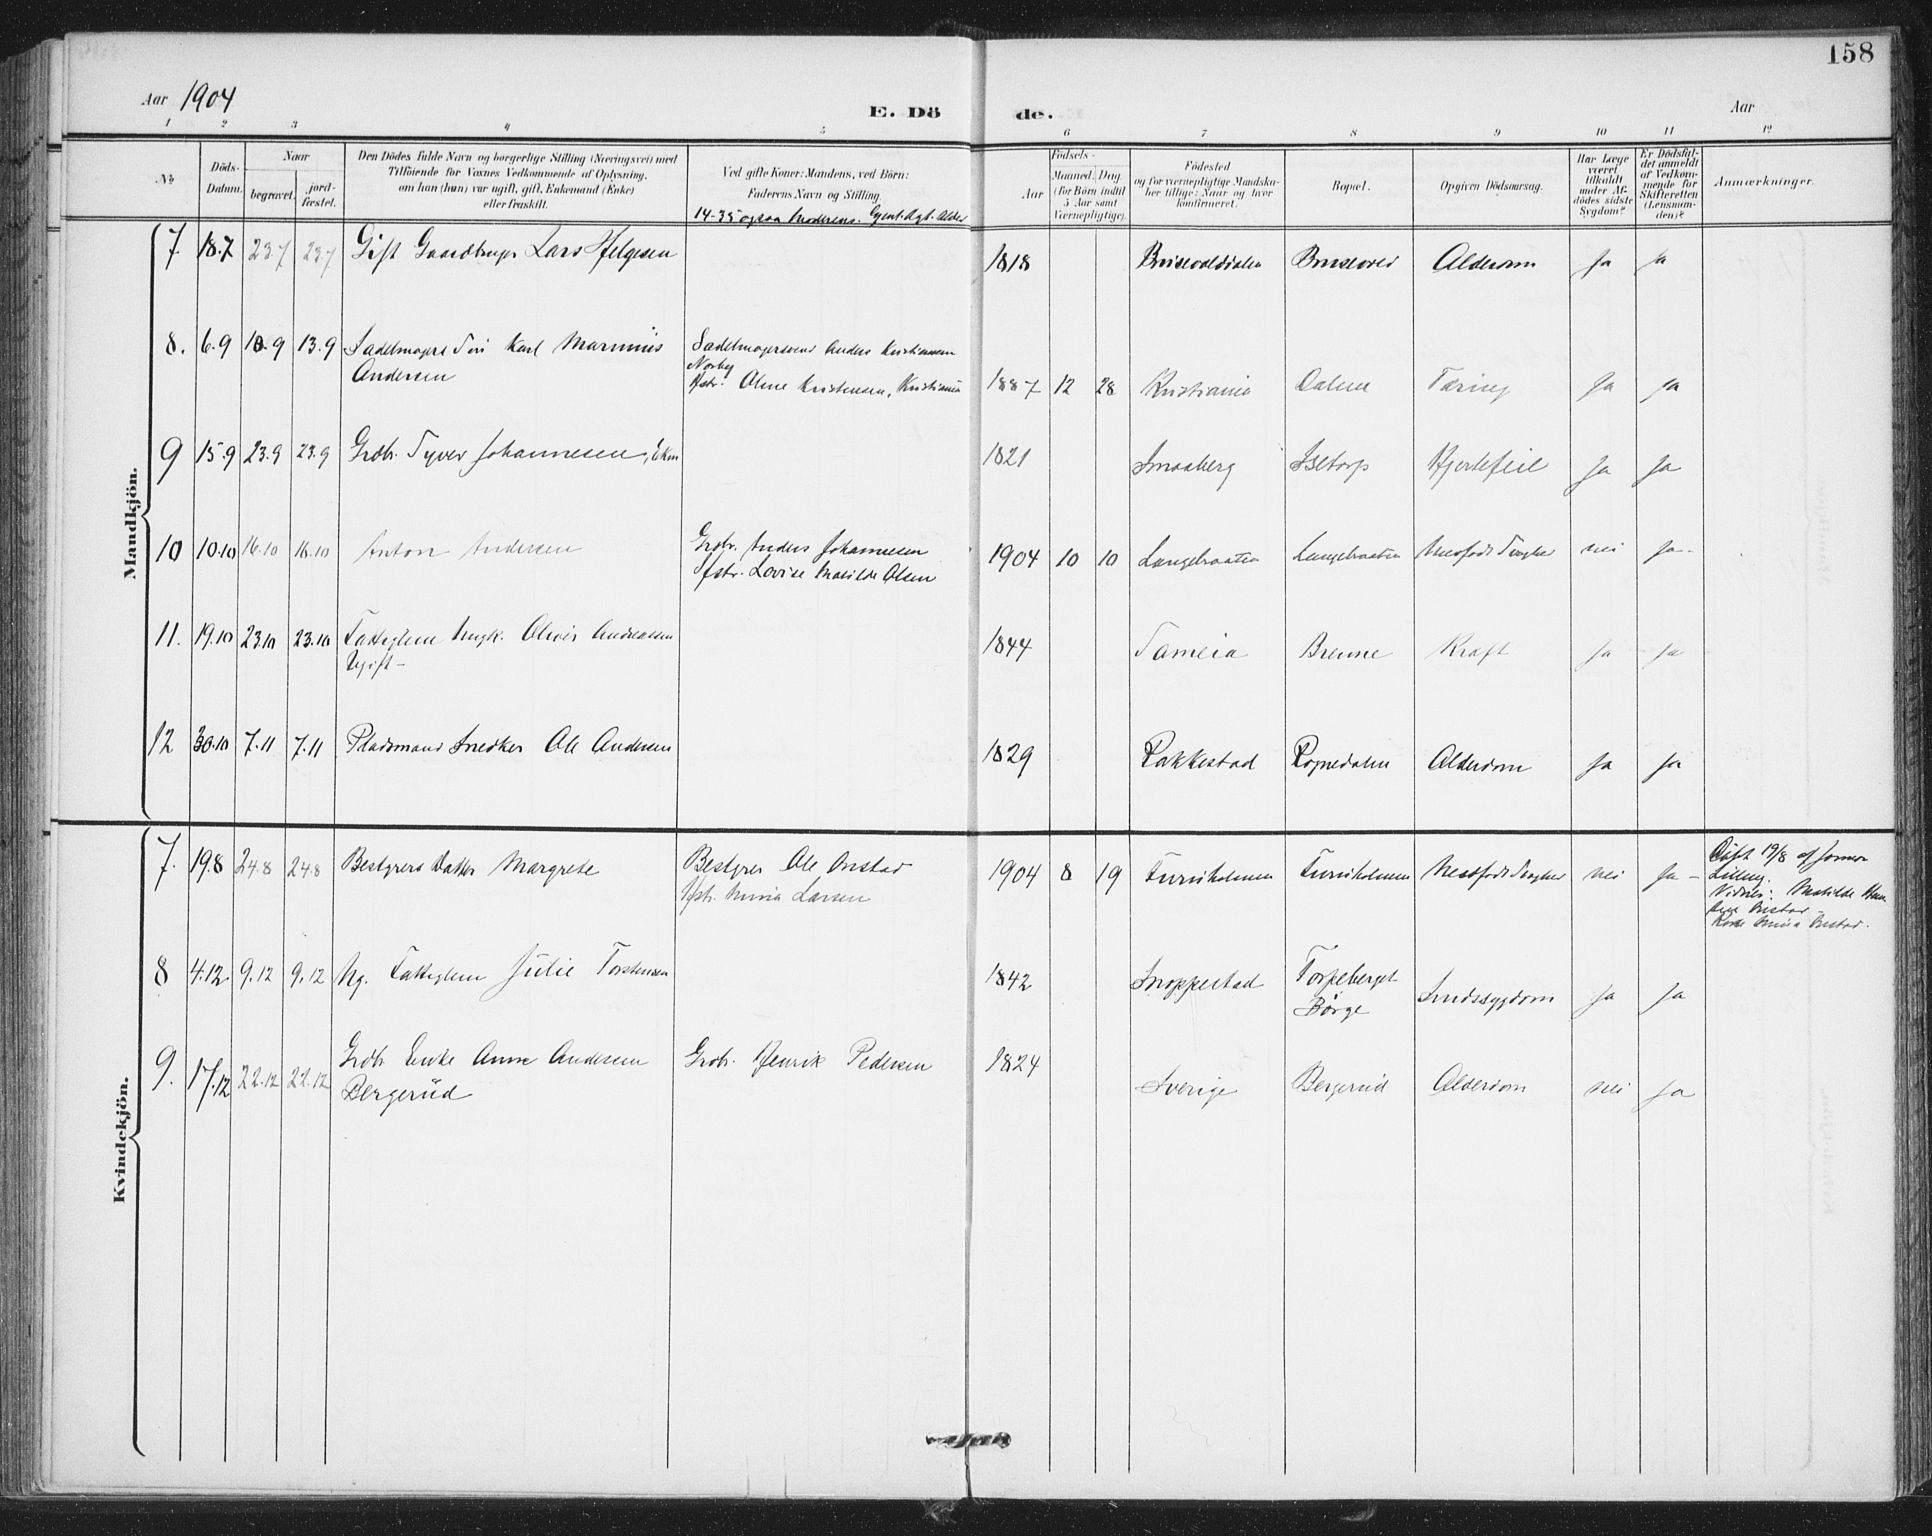 158
Aar 1904
E. Dö de.
Aar
1 2 3 4 5 6 7 8 9 10 11 12
No
Döds-
Datum.
Naar
begravet.
jord-
fæstet.
Den Dödes fulde Navn og borgerlige Stilling (Næringsvei) med
Tilföiende for Voxnes Vedkommende af Oplysning,
om han (hun) var ugift, gift, Enkemand (Enke)
eller fraskilt.
Ved gifte Koner: Mandens, ved Börn:
Faderens Navn og Stilling.
14-35 ogsaa Moderens.
Födsels-
Aar
Maaned. Dag.
(for Börn indtil
5 Aar samt
Værnepligtige).
Födested
og for værnepligtige Mandska-
ber tillige: Naar og hvor
konfirmeret.
Bopæl.
Opgiven Dödsaarsag.
Har Læge
været
tilkaldt
under Af-
dödes sidste
Sygdom?
Er Dödsfal-
det anmeldt
af Vedkom-
mende for
Skifteretten
(Lensman-
den)?
Anmærkninger.
Mandkjön.
7 18.7 23.7 23.7 Gift Gaardbruger Lars Helgesen 1818 Alderdom Ja Ja
8. 6.9 10.9 13.9 Sadelmagers Søn Karl Marinius
Andersen
Sadelmagersvend Anders Kristiansen
Norby
Hstr. Oline Kristensen, Kristiania
1887 12 28 Kristiania Dalen Tæring Ja Ja
9 15.9 23.9 23.9 Grdbr. Syver Johannesen, Ekm 1821 Smaaberg Isetorp Hjertefeil Ja Ja
10 10.10 16.10 16.10 Anton Andersen
Grdbr. Anders Johannesen
Hstr. Lovise Matilde Olsen
1904 10 10 Langebraaten Langebraaten nei Ja
11. 19.10 23.10 23.10 Fattiglem Ungk. Oliver Andreassen
Ugift
1844 Tameia Brenne Kræft Ja Ja
12 30.10 7.11 7.11 Pladsmand Snedker Ole Andersen 1829 Rakkestad Rognedalen Alderdom Ja Ja
Kvindekjön.
7. 19.8 24.8 24.8 Bestyrers Datter Margrete
Bestyrer Ole Onstad
Hstr. Minia Larsen
1904 8 19 Furuholmen Furuholmen nei Ja
Døbt 19/8 af Jormor
8 4.12 9.12 9.12 Ug. Fattiglem Julie Torstensen 1842 Snoppestad
Torpeberget
Børge
Sindssygdom Ja Ja
9. 17.12 22.12 22.12 Grdbr. Enke Anne Andersen
Bergerud
Grdbr. Henrik Pedersen
1824 Sverige Bergerud Alderdom nei Ja